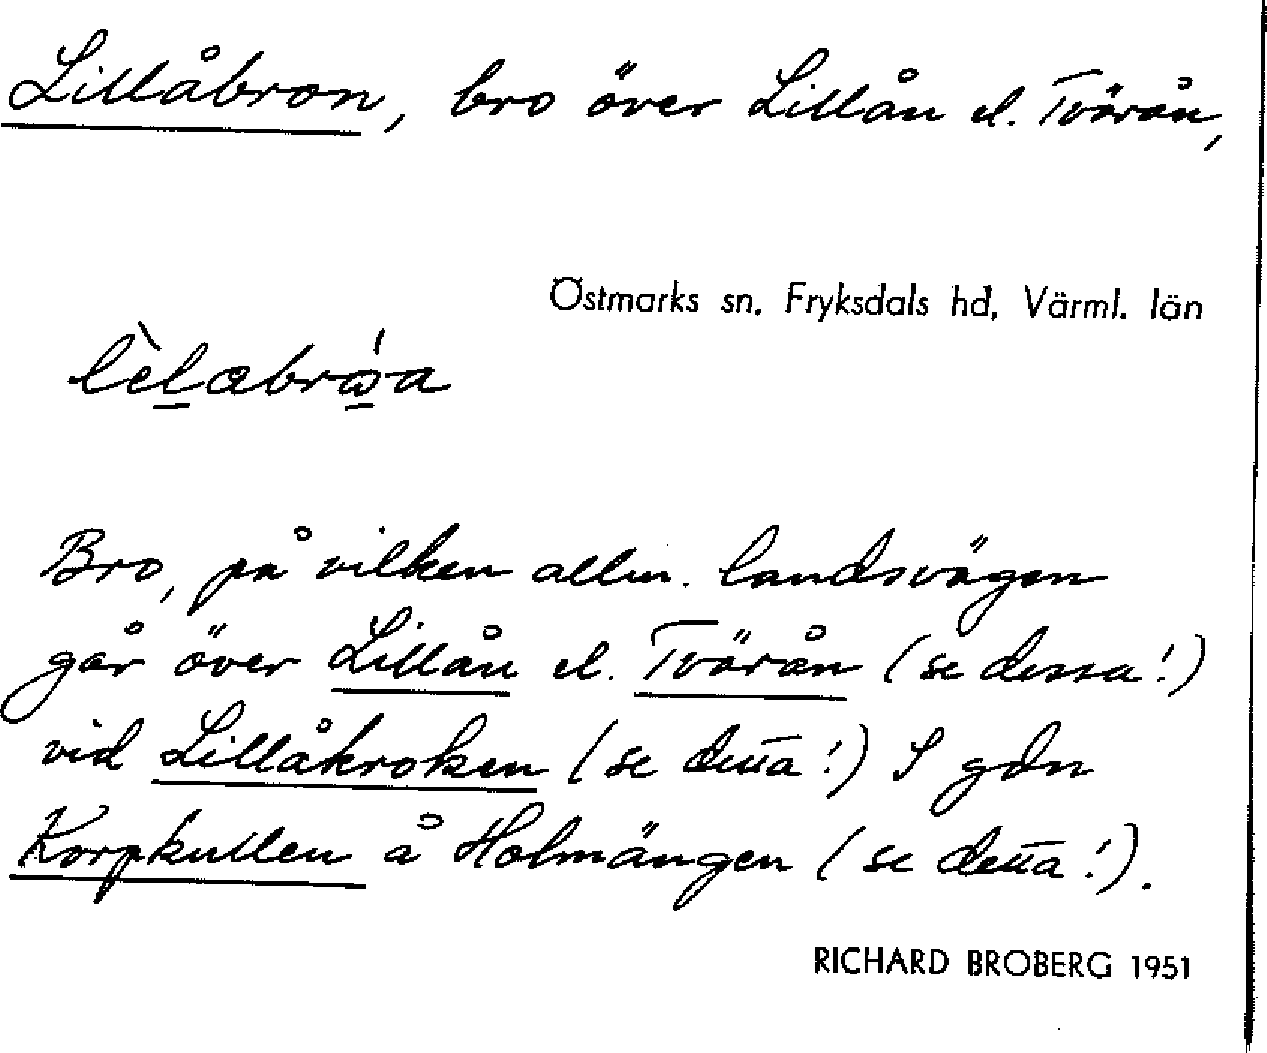 Lillåbron, bro över Lillån el. Tvärån,
Östmarks sn. Fryksdals hd, Värml. län
Bro, på vilken allm. landsvägen
går över Lillån el. Tvärån (se dessa!)
vid Lillåkroken (se detta!) S gdn
Korpkullen å Holmängen (se detta!).
RICHARD BROBERG 1951